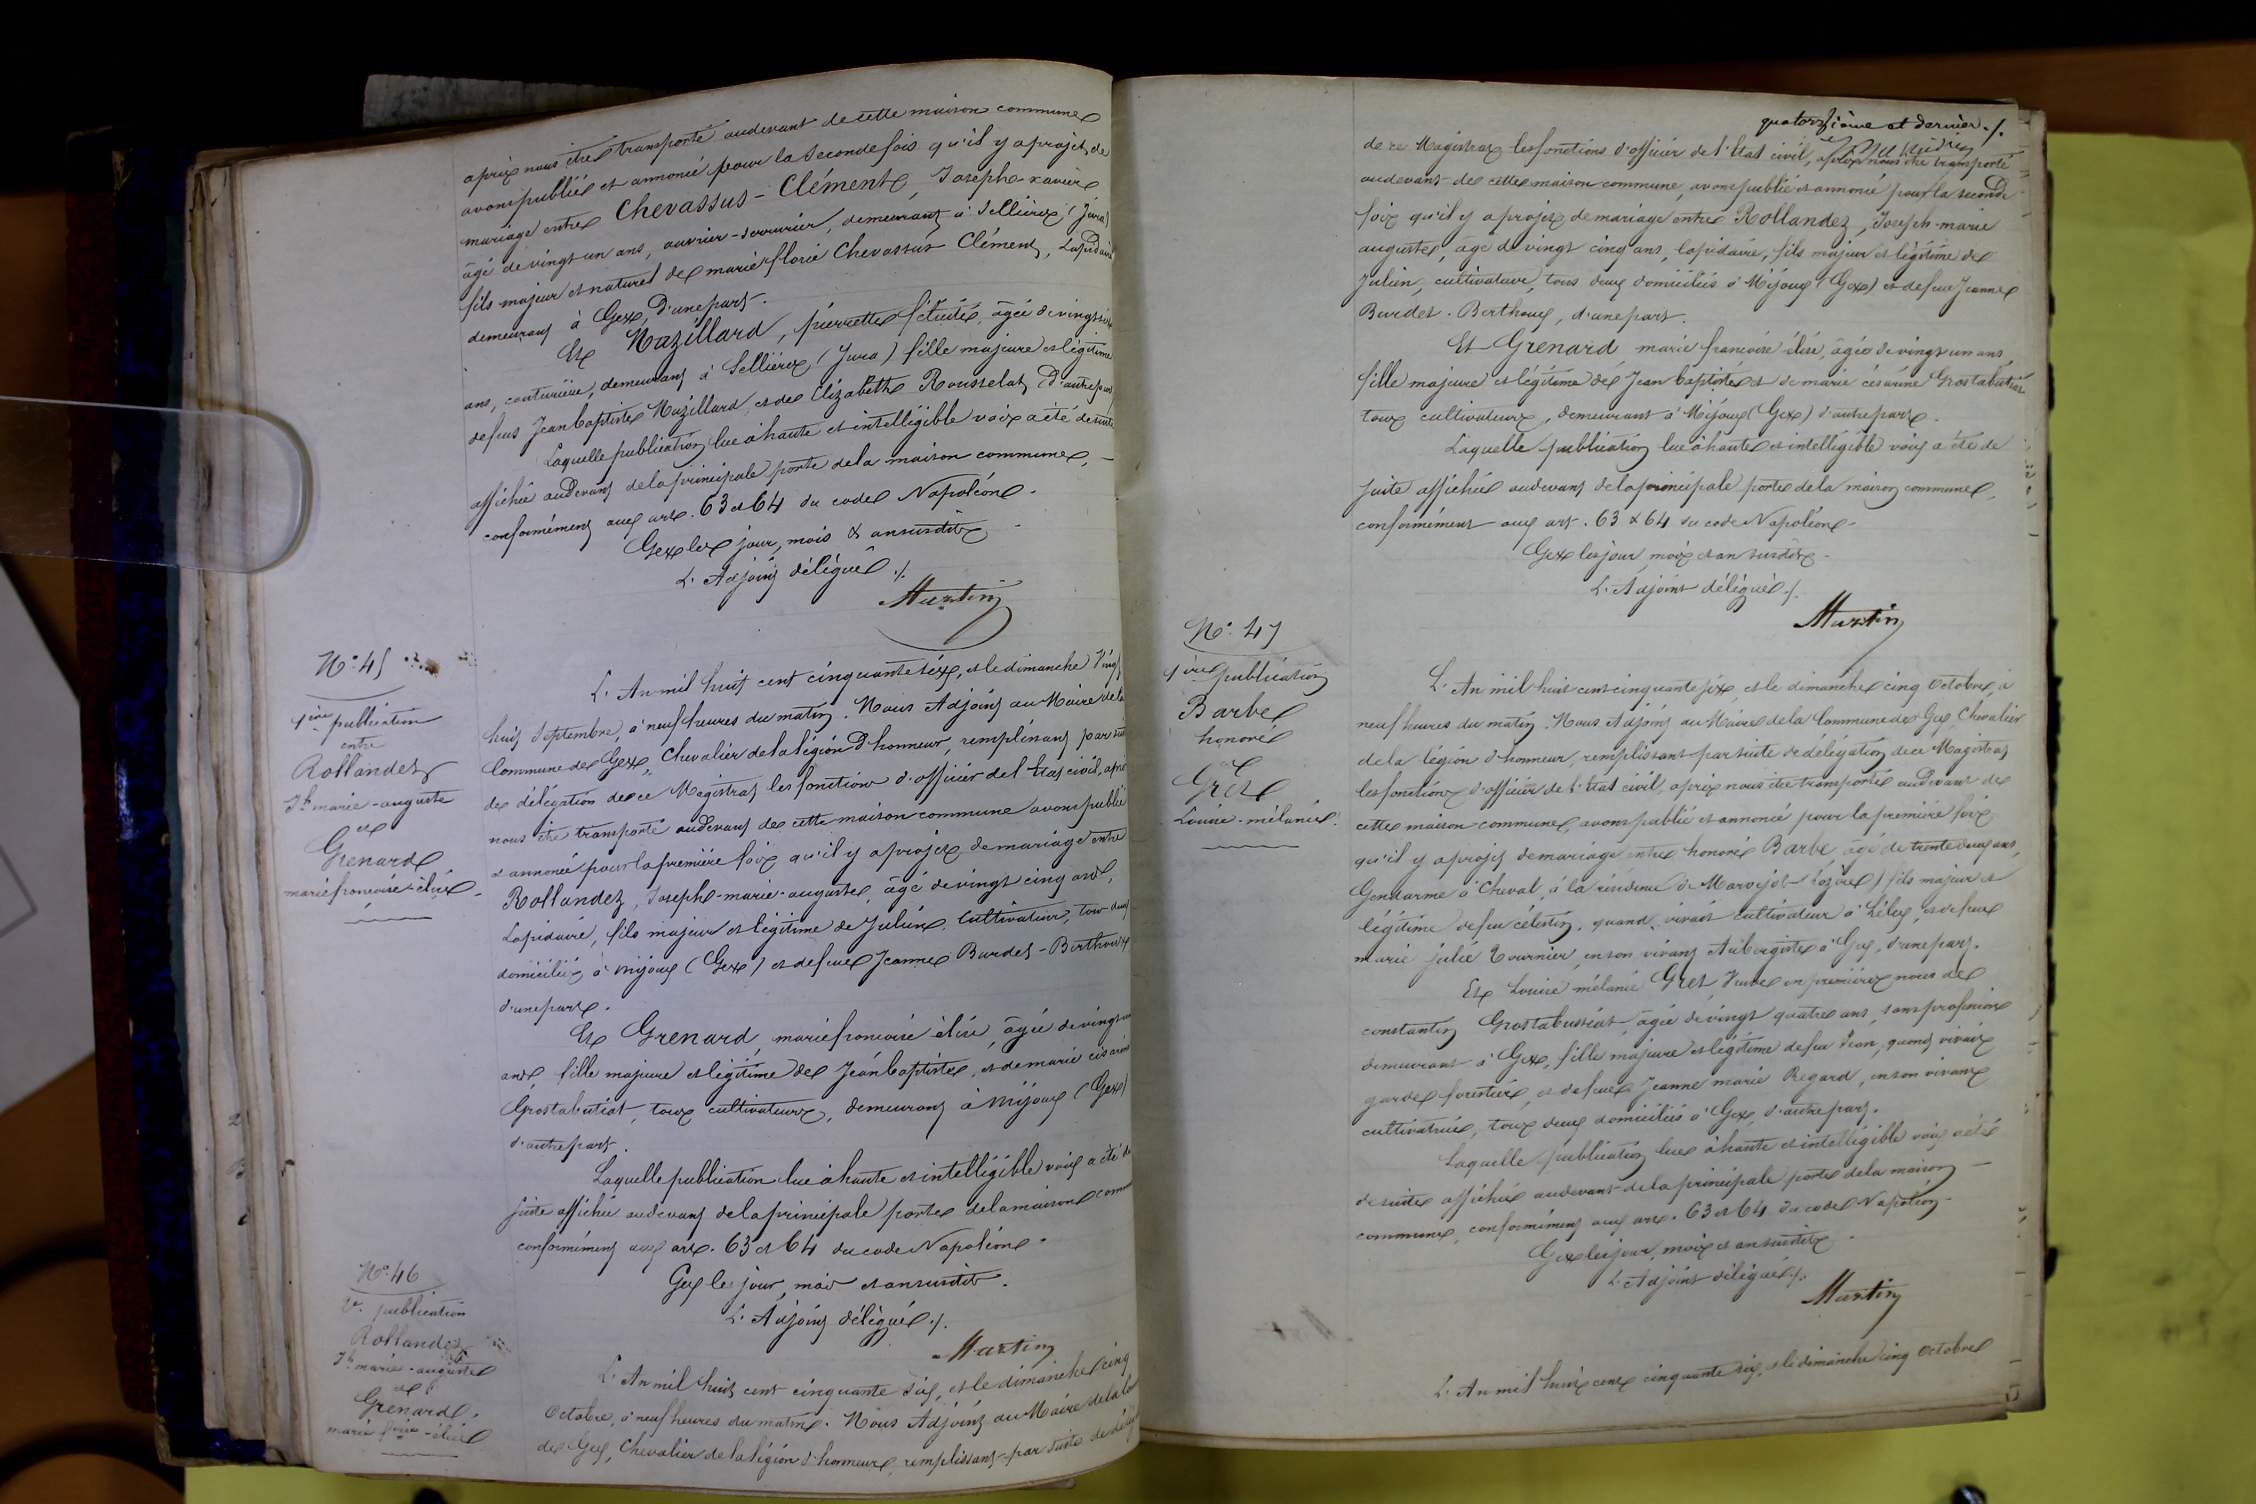 après nous être transporté audevant de cette maison commune
avons publié et annoncé pour la seconde fois qu'il y a projet de
mariage entre Chevassus-Clément, Joseph-xavier
âgé de vingt un ans, ouvrier-serrurier, demeurant à Sellières (Jura)
fils majeur et naturel de marie florie Chevassus Clément, Lapidaire
demeurant à Gex, d'une part.
Et Mazillard, pierrette félicité, âgée de vingt six
ans, couturière, demeurant à Sellières (Jura) fille majeure et légitime
de feus Jean baptiste Mazillard et de Elizabeth Rousselot, d'autre part
Laquelle publication lue à haute et intelligible voix a été de suite
affichée audevant de la principale porte de la maison commune,
conformément aux art. 63 et 64 du code Napoléon.
Gex les jour, mois & an susdits
L'Adjoint délégué ./.
Martin
N° 45
1ère publication
entre
Rollandez
Jh marie-auguste
et
Grenard
marie françoise-élise
L'An mil huit cent cinquante six, et le dimanche Vingt
huit Septembre, à neuf heures du matin. Nous Adjoint au Maire de la
Commune de Gex, Chevalier de la légion d'honneur, remplissant par suite
de délégation de ce Magistrat les fonctions d'officier de l'état civil, après
nous être transporté audevant de cette maison commune avons publié
et annoncé pour la première fois qu'il y a projet de mariage entre
Rollandez, Joseph-marie-auguste, âgé de vingt cinq ans,
Lapidaire, fils majeur et légitime de Julien, Cultivateur, tous deux
domiciliés à Mijoux (Gex) et de feue Jeanne Burdet-Berthoux
d'une part.
Et Grenard, marie françoise élise, âgée de vingt un
ans, fille majeure et légitime de Jean baptiste, et de marie césarine
Grostabutiat, tous cultivateurs, demeurant à Mijoux (Gex)
d'autre part.
Laquelle publication lue à haute et intelligible voix a été de
suite affichée audevant de la principale porte de la maison commune
conformément aux art. 63 et 64 du code Napoléon.
Gex les jour, mois et an susdits.
L'Adjoint délégué ./.
Martin
N° 46
2e publication
Rollandez
Jh marie-auguste
et
Grenard
marie fçoise-élise
L'An mil huit cent cinquante six, et le dimanche cinq
Octobre, à neuf heures du matin. Nous Adjoint au Maire de la
de Gex, Chevalier de la légion d'honneur, remplissant par suite de
quatorzième et dernier ./.
de ce Magistrat les fonctions d'officier de l'état civil, après nous être transporté
audevant de cette maison commune, avons publié et annoncé pour la seconde
fois qu'il y a projet de mariage entre Rollandez, Joseph-marie
auguste, âgé de vingt cinq ans, lapidaire, fils majeur et légitime de
Julien, cultivateur, tous deux domiciliés à Mijoux (Gex) et de feue Jeanne
Burdet-Berthoux, d'une part.
Et Grenard marie françoise élise, âgée de vingt un ans,
fille majeure et légitime de Jean baptiste et de marie césarine Grostabutiat
tous cultivateurs, demeurant à Mijoux (Gex) d'autre part.
Laquelle publication lue à haute et intelligible voix a été de
suite affichée audevant de la principale porte de la maison commune,
conformément aux art. 63 & 64 du code Napoléon.
Gex les jour, mois et an susdits.
L'Adjoint délégué ./.
Martin
N° 47
1ère publication
Barbe
honoré
et
Gret
Louise-mélanie.
L'An mil huit cent cinquante six, et le dimanche cinq Octobre, à
neuf heures du matin. Nous Adjoint au Maire de la Commune de Gex, Chevalier
de la légion d'honneur, remplissant par suite de délégation de ce Magistrat
les fonctions d'officier de l'état civil, après nous être transporté audevant de
cette maison commune, avons publié et annoncé pour la première fois
qu'il y a projet de mariage entre honoré Barbe, âgé de trente deux ans,
Gendarme à Cheval, à la résidence de Marvejols (Lozère) fils majeur et
légitime de feu célestin, quand vivait cultivateur à Lélex, et de feue
marie julie Tournier, en son vivant Aubergiste à Gex, d'une part.
Et Louise mélanie Gret, Veuve en premières noces de
constantin Grostabussiat, âgée de vingt quatre ans, sans profession
demeurant à Gex, fille majeure et légitime de feu Jean, quand vivait
garde forestier, et de feue Jeanne marie Regard, en son vivant
cultivatrice, tous deux domiciliés à Gex, d'autre part.
Laquelle publication lue à haute et intelligible voix a été
de suite affichée audevant de la principale porte de la maison
commune, conformément aux art. 63 et 64 du code Napoléon.
Gex les jour, mois et an susdits.
L'Adjoint délégué ./.
Martin
L'An mil huit cent cinquante six, et le dimanche cinq Octobre